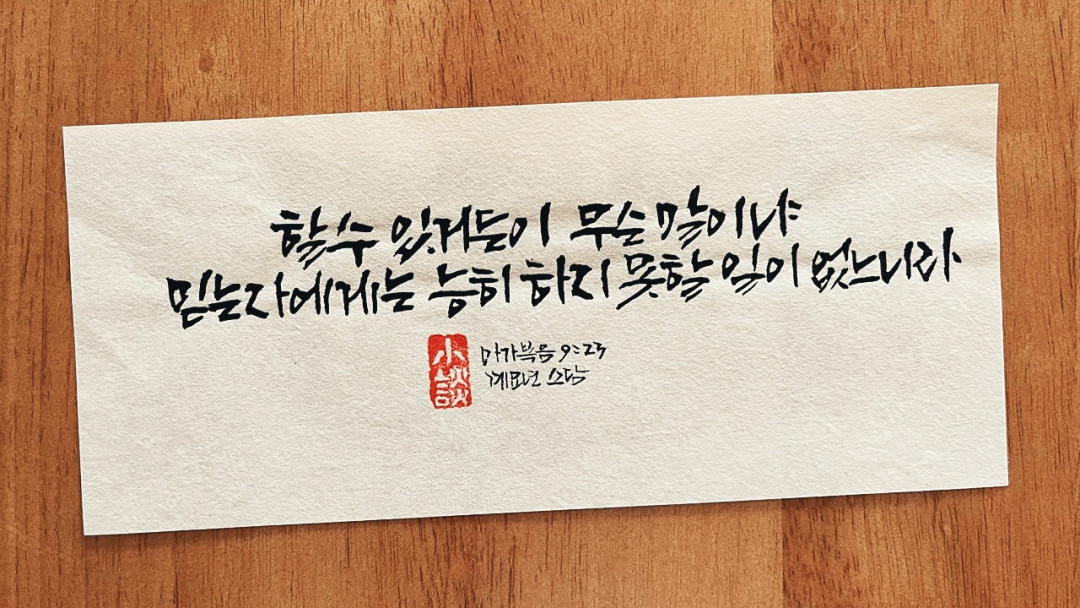 할수 있거든이 무슨 말이냐
믿는자에게는 능히 하지 못할 일이 없느니라
小談
마가복음 9:23
계묘년 소담